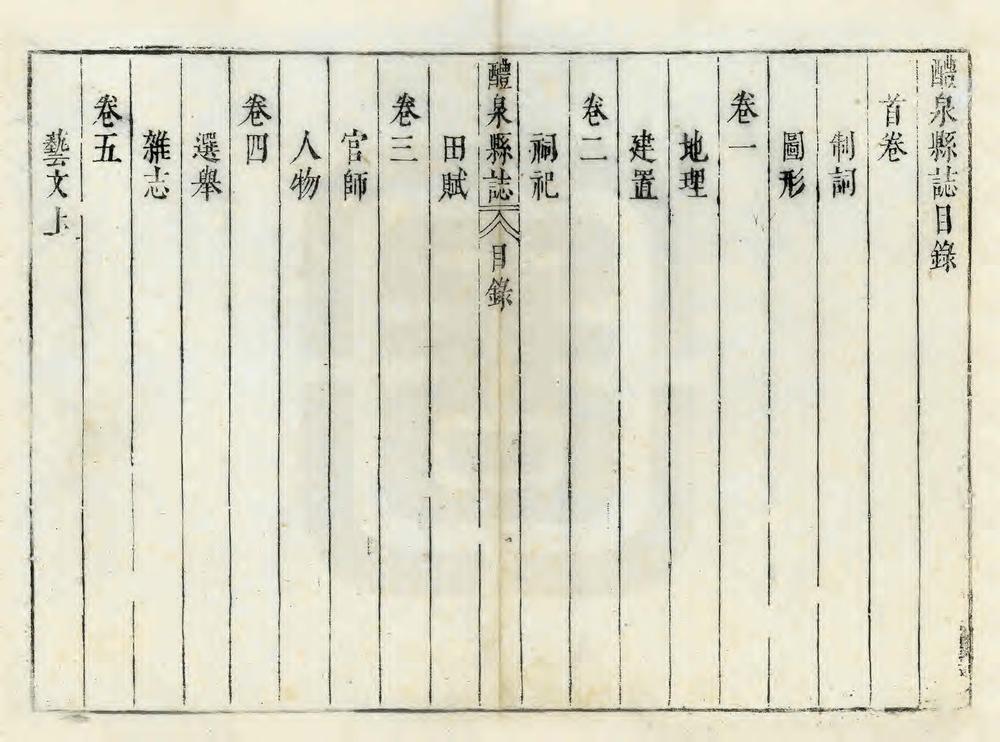 醴泉縣誌目錄
首卷
制詞
圖形
卷一
地理
建置
卷二
祠祀
醴泉縣誌 目錄
田賦
卷三
官師
人物
卷四
選舉
雜志
卷五
藝文上